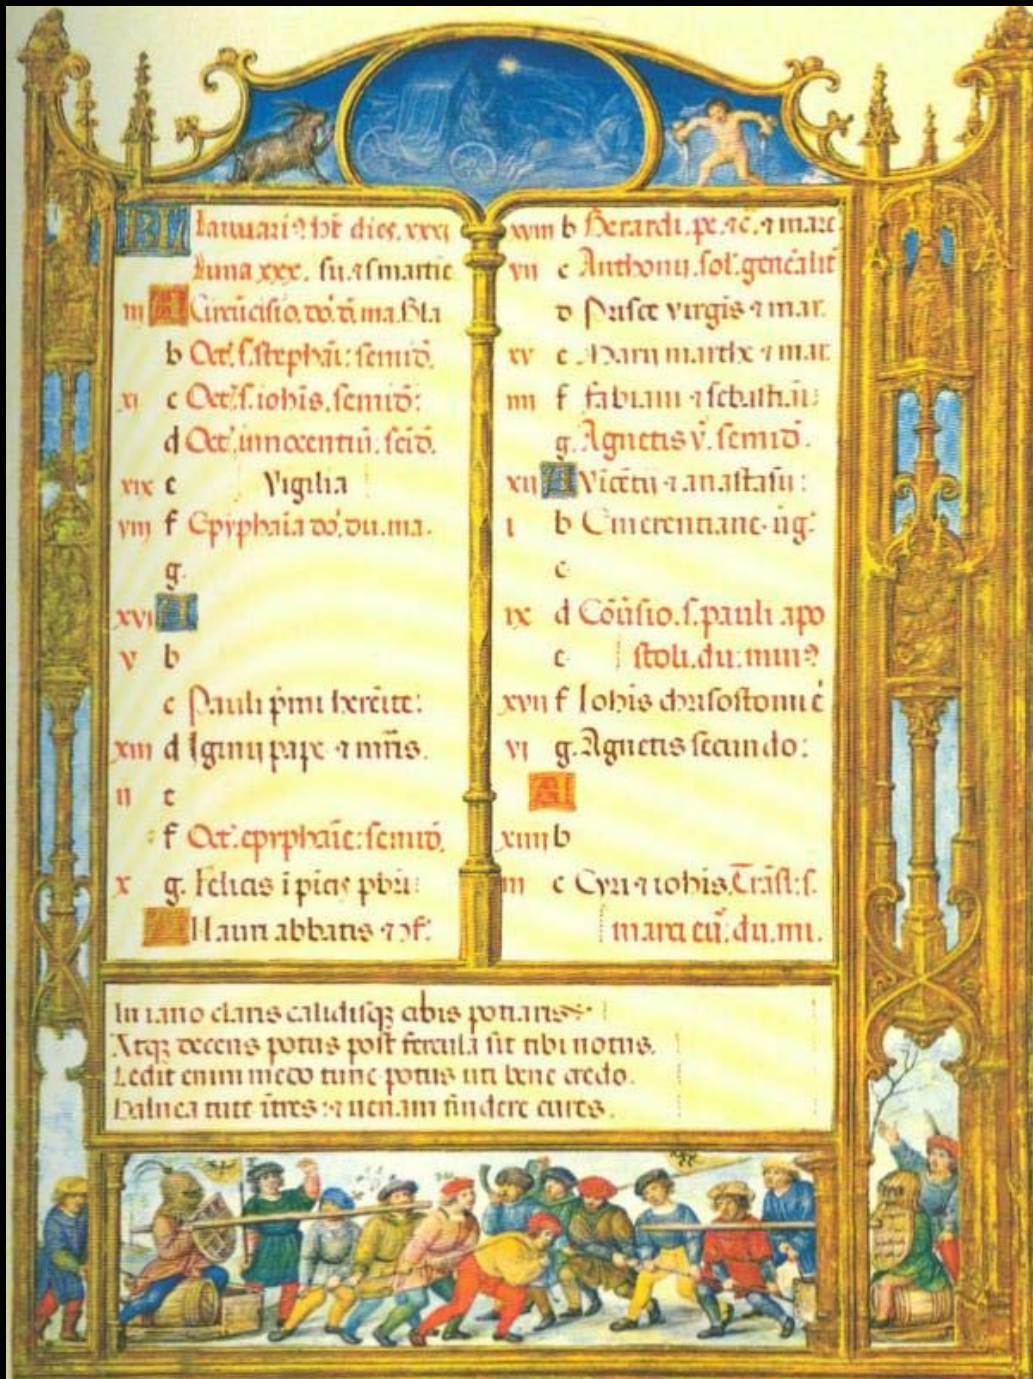 KL Januari9 ht dies. xxxi
Luna xxx. fu. et smartie
iii A Circūcisio. do. di. ma. Bla
b Oct'. s. stephāi: semid̄.
xi c Oct'. s. iohis. semid̄:
d Oct'. innocentiū: seid̄.
xix e Vigilia
viii f Epyphaīa do'. du. ma.
g.
xvi A
v b
c Pauli p̄mi heremite:
xiii d Iginij pape et m̄ris.
ii e
f Oct'. epyphaīe: semid̄.
x g. Felicis ī picis pbri:
A Mauri abbatis et ɔf.
xviii b Berardi. pe. et mare
vii c Anthonij. sol'. gen
d Prisce virgis et mar.
xv e Marij marthe et mar.
iiii f Fabiani et sebastiāi:
g. Agnetis v. semid̄.
xii A Vicētij et anastasij:
i b Emerentiane. v̄g.
c
ix d Cōv̄sio. s. pauli apo
e stoli. du. min9
xvii f Iohis chrisostomi
vi g. Agnetis secundo:
A
xiiii b
iii c Cyri et iohis. Trāsl: s.
marci eū. du. mi.
In iano claris calidisqꝫ cibis potiaris.
Atqꝫ decens potus post fercula sit tibi notus.
Ledit enim medo tunc potus uti bene credo.
Balnea tute ītres: et uenam findere cures.